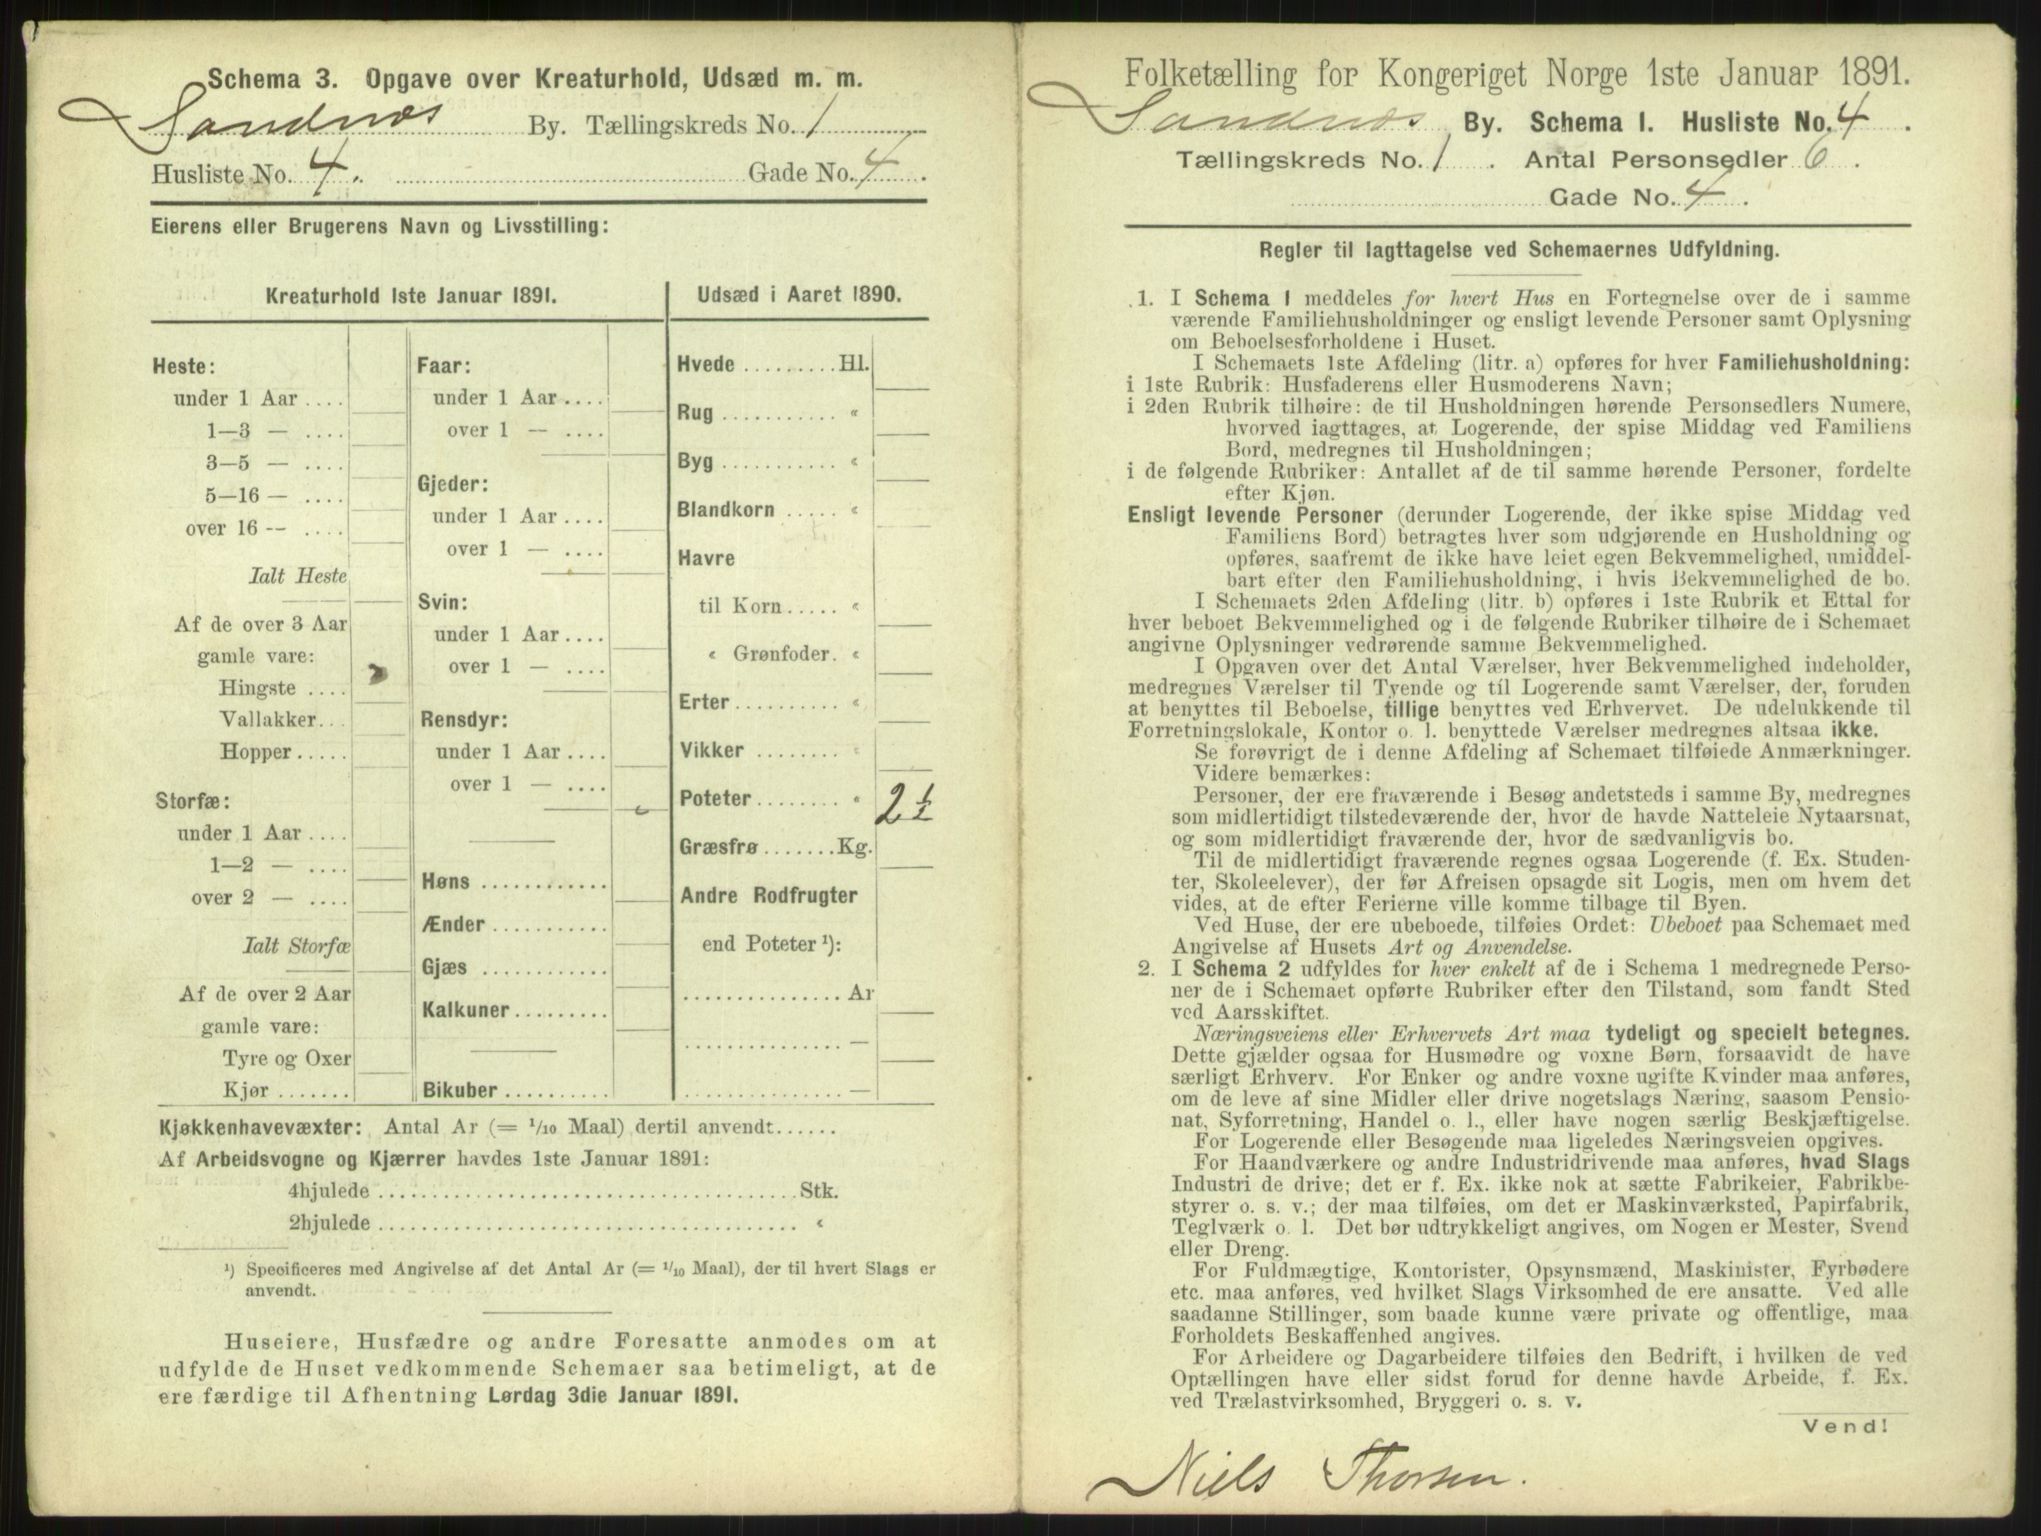 Schema 3. Opgave over Kreaturhold, Udsæd m. m.
Sandnæs By. Tællingskreds No. 1
Husliste No. 4. Gade No. 4.
Eierens eller Brugerens Navn og Livsstilling:
Kreaturhold 1ste Januar 1891.
Heste:
under 1 Aar ....
1—3 — ....
3—5 — ....
5—16 — ....
over 16 -- ....
Ialt Heste
Af de over 3 Aar
gamle vare:
Hingste ....
Vallakker...
Hopper.....
Storfæ:
under 1 Aar ....
1—2 — ....
over 2 — ....
Ialt Storfæ
Af de over 2 Aar
gamle vare:
Tyre og Oxer
Kjør .......
Faar:
under 1 Aar ....
over 1 — ....
Gjeder:
under 1 Aar ....
over 1 — ....
Svin:
under 1 Aar ....
over 1 — ....
Rensdyr:
under 1 Aar ....
over 1 — ....
Høns ............
Ænder ...........
Gjæs ............
Kalkuner .........
Bikuber ..........
Udsæd i Aaret 1890.
Hvede ......... Hl.
Rug ........... “
Byg ........... “
Blandkorn ..... “
Havre
til Korn..... “
“ Grønfoder. “
Erter.......... “
Vikker ........ “
Poteter........ “ 2 1/2
Græsfrø ....... Kg.
Andre Rodfrugter
end Poteter ¹):
............... Ar
............... —
............... —
Kjøkkenhavevæxter: Antal Ar (= 1/10 Maal) dertil anvendt......
Af Arbeidsvogne og Kjærrer havdes 1ste Januar 1891:
4hjulede ....................................... Stk.
2hjulede ....................................... “
¹) Specificeres med Angivelse af det Antal Ar (= 1/10 Maal), der til hvert Slags er
anvendt.
Huseiere, Husfædre og andre Foresatte anmodes om at
udfylde de Huset vedkommende Schemaer saa betimeligt, at de
ere færdige til Afhentning Lørdag 3die Januar 1891.
Folketælling for Kongeriget Norge 1ste Januar 1891.
Sandnæs By. Schema 1. Husliste No. 4.
Tællingskreds No. 1. Antal Personsedler 6.
Gade No. 4.
Regler til Iagttagelse ved Schemaernes Udfyldning.
1. I Schema 1 meddeles for hvert Hus en Fortegnelse over de i samme
værende Familiehusholdninger og ensligt levende Personer samt Oplysning
om Beboelsesforholdene i Huset.
I Schemaets 1ste Afdeling (litr. a) opføres for hver Familiehusholdning:
i 1ste Rubrik: Husfaderens eller Husmoderens Navn;
i 2den Rubrik tilhøire: de til Husholdningen hørende Personsedlers Numere,
hvorved iagttages, at Logerende, der spise Middag ved Familiens
Bord, medregnes til Husholdningen;
i de følgende Rubriker: Antallet af de til samme hørende Personer, fordelte
efter Kjøn.
Ensligt levende Personer (derunder Logerende, der ikke spise Middag ved
Familiens Bord) betragtes hver som udgjørende en Husholdning og
opføres, saafremt de ikke have leiet egen Bekvemmelighed, umiddel-
bart efter den Familiehusholdning, i hvis Bekvemmelighed de bo.
I Schemaets 2den Afdeling (litr. b) opføres i 1ste Rubrik et Ettal for
hver beboet Bekvemmelighed og i de følgende Rubriker tilhøire de i Schemaet
angivne Oplysninger vedrørende samme Bekvemmelighed.
I Opgaven over det Antal Værelser, hver Bekvemmelighed indeholder,
medregnes Værelser til Tyende og til Logerende samt Værelser, der, foruden
at benyttes til Beboelse, tillige benyttes ved Erhvervet. De udelukkende til
Forretningslokale, Kontor o. l. benyttede Værelser medregnes altsaa ikke.
Se forøvrigt de i denne Afdeling af Schemaet tilføiede Anmærkninger.
Videre bemærkes:
Personer, der ere fraværende i Besøg andetsteds i samme By, medregnes
som midlertidigt tilstedeværende der, hvor de havde Natteleie Nytaarsnat,
og som midlertidigt fraværende der, hvor de sædvanligvis bo.
Til de midlertidigt fraværende regnes ogsaa Logerende (f. Ex. Studen-
ter, Skoleelever), der før Afreisen opsagde sit Logis, men om hvem det
vides, at de efter Ferierne ville komme tilbage til Byen.
Ved Huse, der ere ubeboede, tilføies Ordet: Ubeboet paa Schemaet med
Angivelse af Husets Art og Anvendelse.
2. I Schema 2 udfyldes for hver enkelt af de i Schema 1 medregnede Perso-
ner de i Schemaet opførte Rubriker efter den Tilstand, som fandt Sted
ved Aarsskiftet.
Næringsveiens eller Erhvervets Art maa tydeligt og specielt betegnes.
Dette gjælder ogsaa for Husmødre og voxne Børn, forsaavidt de have
særligt Erhverv. For Enker og andre voxne ugifte Kvinder maa anføres,
om de leve af sine Midler eller drive nogetslags Næring, saasom Pensio-
nat, Syforretning, Handel o. l., eller have nogen særlig Beskjæftigelse.
For Logerende eller Besøgende maa ligeledes Næringsveien opgives.
For Haandværkere og andre Industridrivende maa anføres, hvad Slags
Industri de drive; det er f. Ex. ikke nok at sætte Fabrikeier, Fabrikbe-
styrer o. s. v.; der maa tilføies, om det er Maskinværksted, Papirfabrik,
Teglværk o. l. Det bør udtrykkeligt angives, om Nogen er Mester, Svend
eller Dreng.
For Fuldmægtige, Kontorister, Opsynsmænd, Maskinister, Fyrbødere
etc. maa anføres, ved hvilket Slags Virksomhed de ere ansatte. Ved alle
saadanne Stillinger, som baade kunne være private og offentlige, maa
Forholdets Beskaffenhed angives.
For Arbeidere og Dagarbeidere tilføies den Bedrift, i hvilken de ved
Optællingen have eller sidst forud for denne havde Arbeide, f. Ex.
ved Trælastvirksomhed, Bryggeri o. s. v.
Vend!
Niels Thorsen.